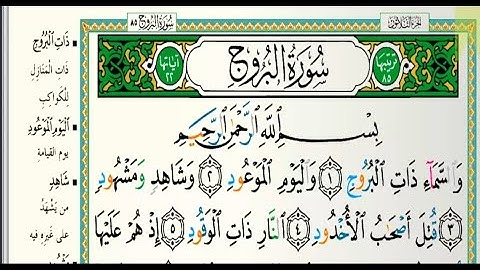 الجزء الثلاثون
سورة البروج ٨٥
ترتيبها ٨٥
سُورَةُ البُرُوجِ
آياتها ٢٢
بِسْمِ اللَّهِ الرَّحْمَٰنِ الرَّحِيمِ
وَالسَّمَآءِ ذَاتِ الْبُرُوجِ ١ وَالْيَوْمِ الْمَوْعُودِ ٢ وَشَاهِدٍ وَمَشْهُودٍ
٣ قُتِلَ أَصْحَابُ الْأُخْدُودِ ٤ النَّارِ ذَاتِ الْوَقُودِ ٥ إِذْ هُمْ عَلَيْهَا
ذَاتِ الْبُرُوجِ
ذات المنازل
للكواكب
الْيَوْمِ الْمَوْعُودِ
يوم القيامة
شَاهِدٍ
من يشهد
على غيره فيه